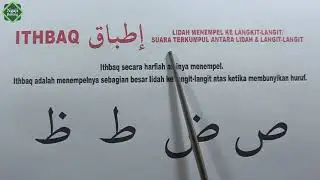 ITHBAQ إطباق
LIDAH MENEMPEL KE LANGKIT-LANGIT
SUARA TERKUMPUL ANTARA LIDAH & LANGIT-LANGIT
Ithbaq secara harfiah artinya menempel.
Ithbaq adalah menempelnya sebagian besar lidah ke langit-langit atas ketika membunyikan huruf.
ص ض ط ظ